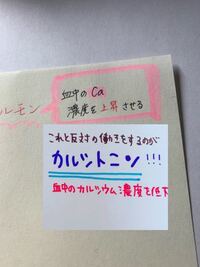 血中のCa
濃度を上昇させる
ルモン
これと反対の働きをするのが
カルシトニン!!!
血中のカルシウム濃度を低下